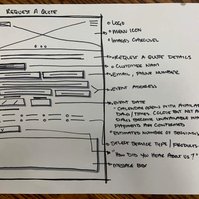 REQUEST A QUOTE
LOGO
MENU ICON
IMAGES CAROUSEL
REQUEST A QUOTE DETAILS
CUSTOMER NAME
EMAIL, PHONE NUMBER
EVENT ADDRESS
EVENT DATE
- CALENDAR OPENS WITH AVAILABLE
DAYS/TIMES. COLOUR BUT NOT A
DIALS BECOME UNAVAILABLE
PAYMENTS ARE CONFIRMED
ESTIMATED NUMBER OF
SELECT SERVICE TYPE / PACKAGES
"HOW DID YOU HEAR ABOUT US?"
MESSAGE BOX